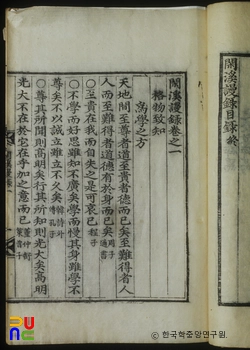 溪謾録目録終
溪謾録卷之一
格物致知
爲學之方
天地間至尊者道至貴者德而已矣至難得者人
人而至難得者道德有於身而已矣 周子通書
○至貴在我而自失之是可哀已 程子
○不學而好思雖知不廣矣學而慢其身雖學不
尊矣不以誠立雖立不久矣 韓詩外
○尊其所聞則高明矣行其所知則光大矣高明
光大不在於它在乎加之意而已 董仲舒
한국학중앙연구원